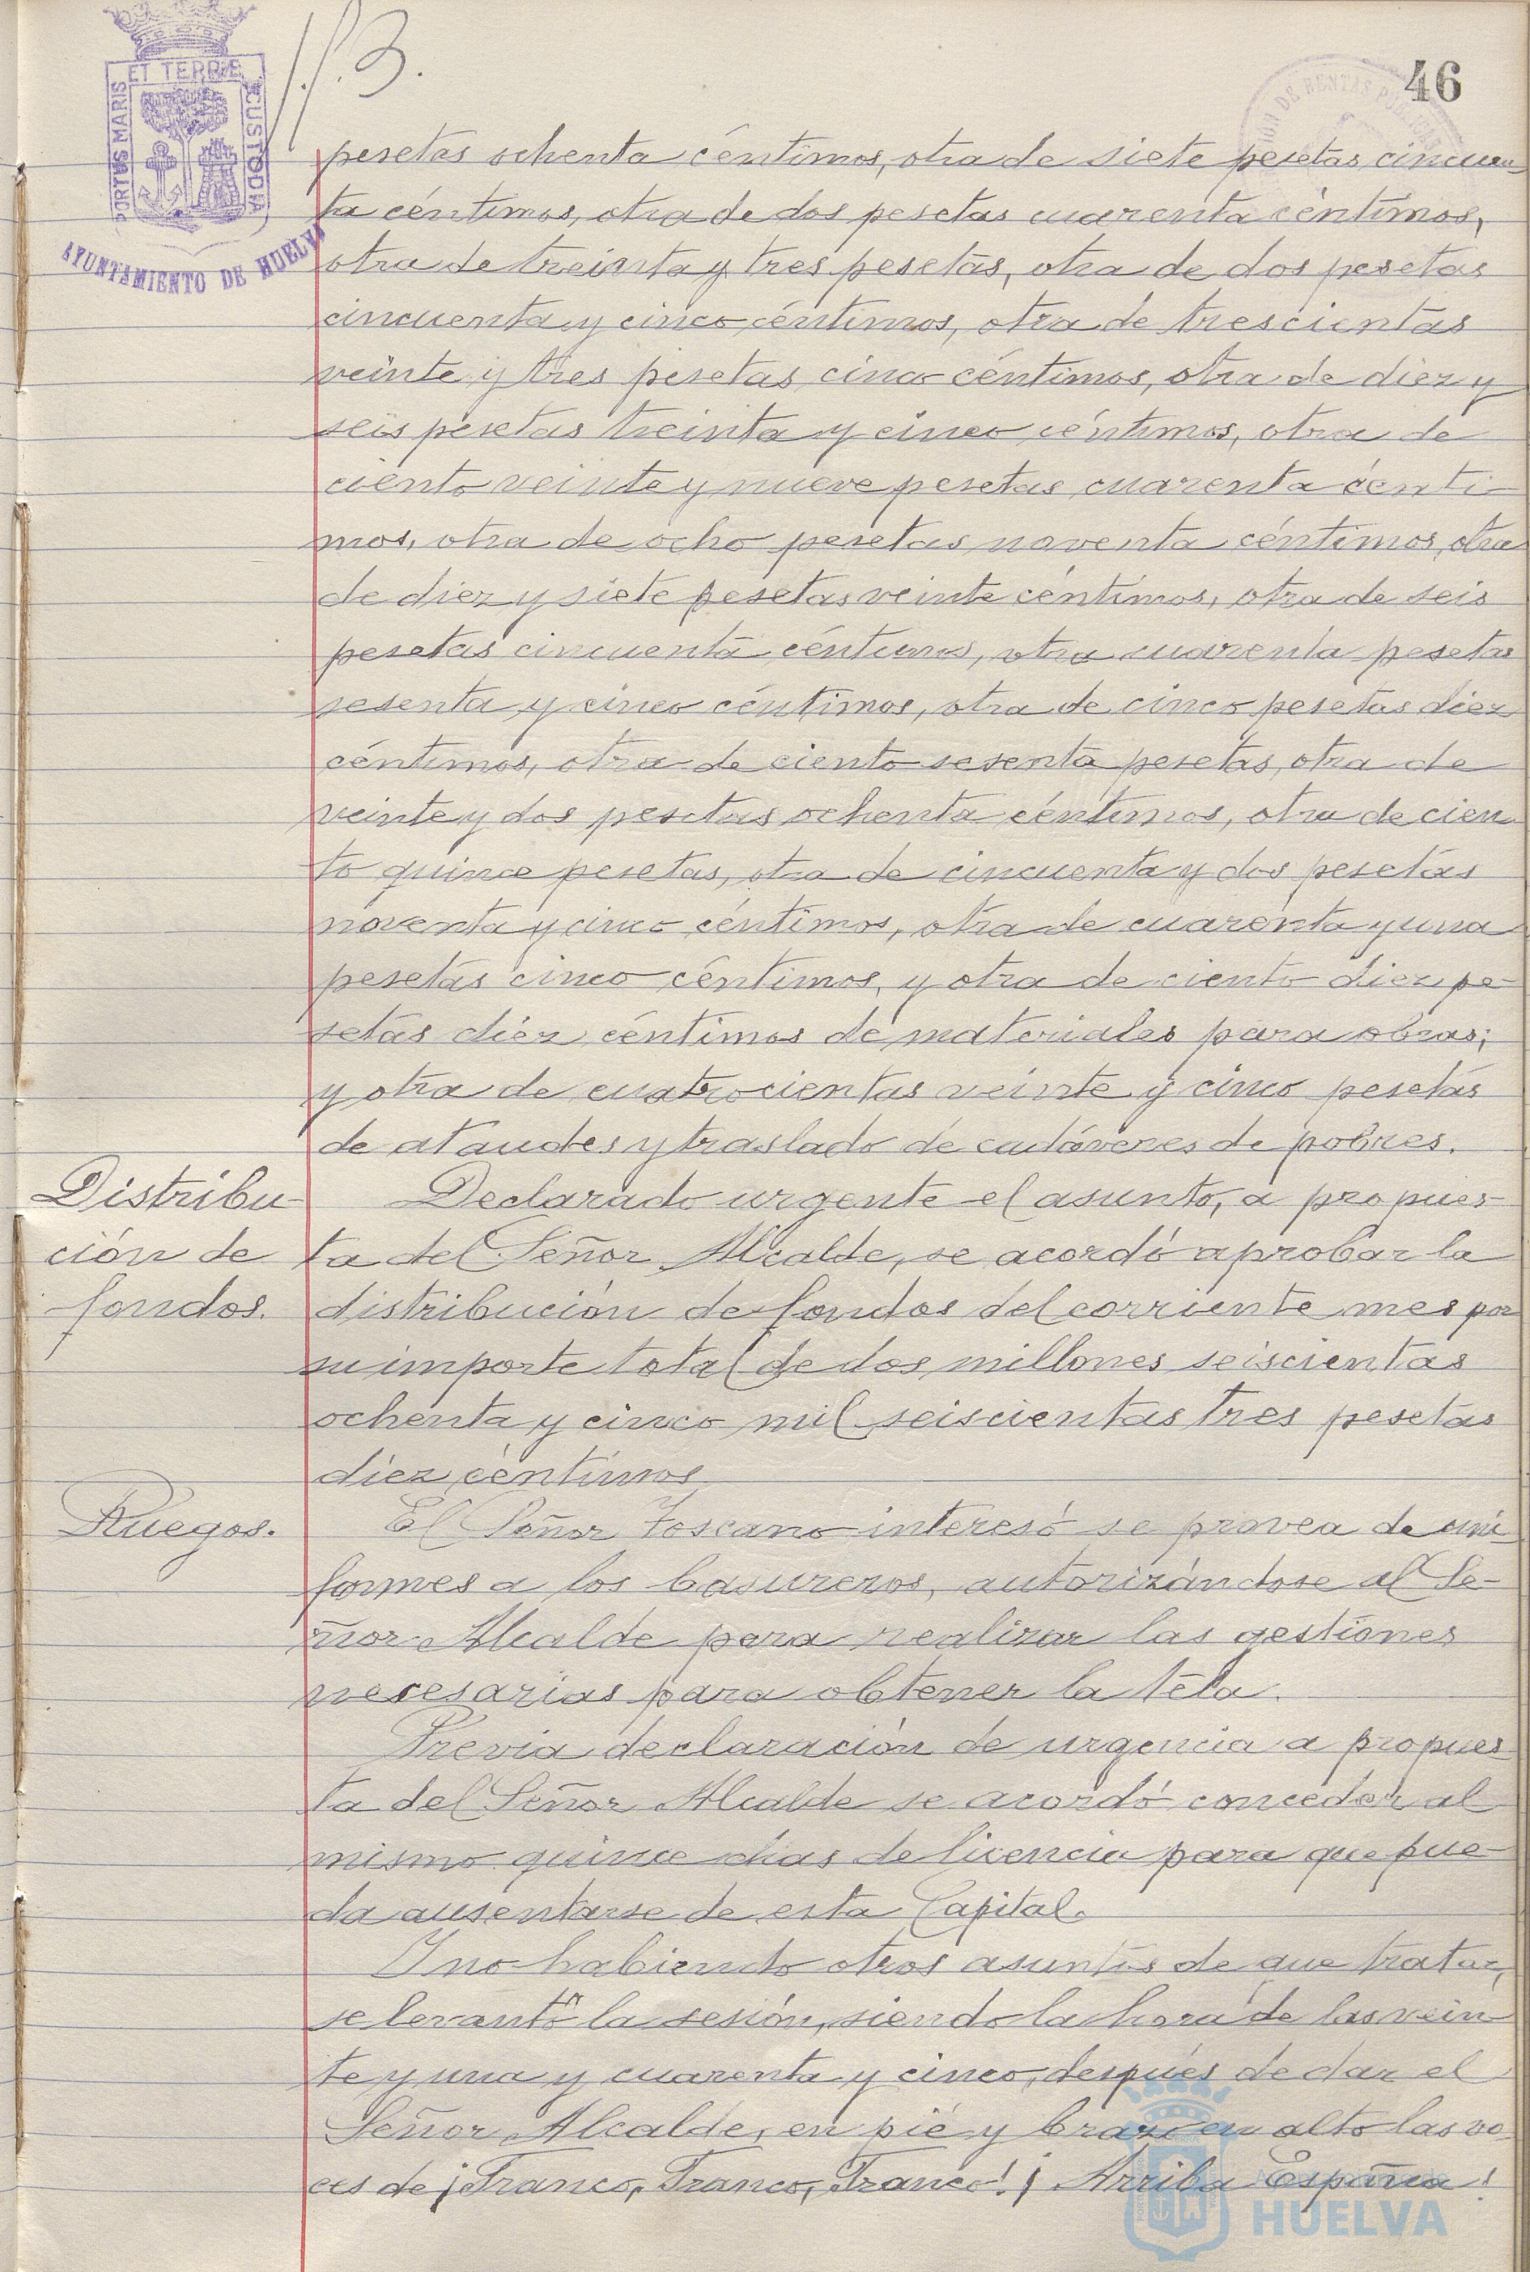 46
PORTUS MARIS ET TERRÆ CUSTODIA
AYUNTAMIENTO DE HUELVA
pesetas ochenta céntimos, otra de siete pesetas cincuen-
ta céntimos, otra de dos pesetas cuarenta céntimos,
otra de treinta y tres pesetas, otra de dos pesetas
cincuenta y cinco céntimos, otra de trescientas
veinte y tres pesetas cinco céntimos, otra de diez y
seis pesetas treinta y cinco céntimos, otra de
ciento veinte y nueve pesetas cuarenta cénti-
mos, otra de ocho pesetas noventa céntimos, otra
de diez y siete pesetas veinte céntimos, otra de seis
pesetas cincuenta céntimos, otra cuarenta pesetas
sesenta y cinco céntimos, otra de cinco pesetas diez
céntimos, otra de ciento sesenta pesetas, otra de
veinte y dos pesetas ochenta céntimos, otra de cien-
to quince pesetas, otra de cincuenta y dos pesetas
noventa y cinco céntimos, otra de cuarenta y una
pesetas cinco céntimos, y otra de ciento diez pe-
setas diez céntimos de materiales para obras;
y otra de cuatrocientas veinte y cinco pesetas
de ataudes y traslado de cadáveres de pobres.
Distribu-
ción de
fondos.
Declarado urgente el asunto, a propues-
ta del Señor Alcalde, se acordó aprobar la
distribución de fondos del corriente mes por
su importe total de dos millones seiscientas
ochenta y cinco mil seiscientas tres pesetas
diez céntimos
Ruegos.
El Señor Toscano interesó se provea de uni-
formes a los basureros, autorizándose al Se-
ñor Alcalde para realizar las gestiones
necesarias para obtener la tela.
Previa declaración de urgencia a propues-
ta del Señor Alcalde se acordó conceder al
mismo quince dias de licencia para que pue-
da ausentarse de esta Capital.
Y no habiendo otros asuntos de que tratar,
se levantó la sesión, siendo la hora de las vein-
te y una y cuarenta y cinco, después de dar el
Señor Alcalde, en pié y brazo en alto las vo-
ces de ¡Franco, Franco, Franco! ¡Arriba España!
HUELVA